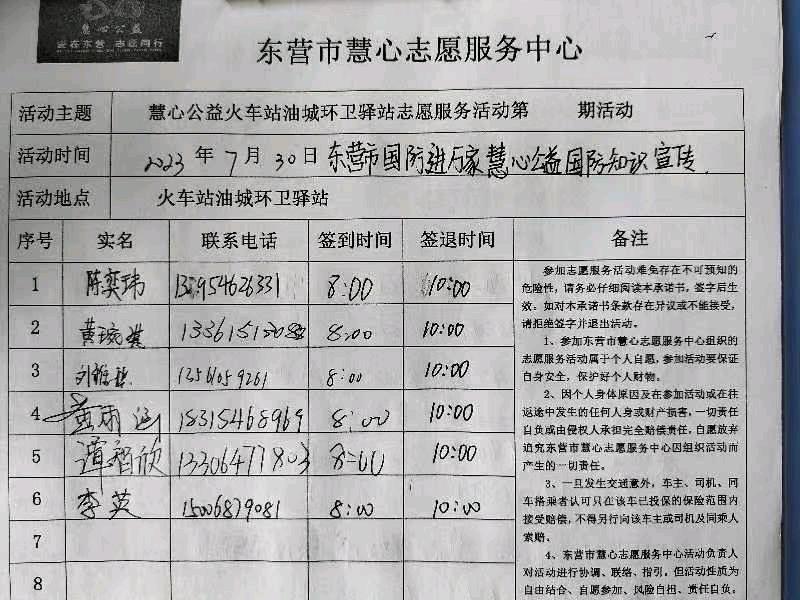 慧心公益
爱在东营 志愿同行
东营市慧心志愿服务中心
活动主题 慧心公益火车站油城环卫驿站志愿服务活动第 期活动
活动时间 2023年7月30日东营市国防进万家慧心公益国防知识宣传
活动地点 火车站油城环卫驿站
序号 实名 联系电话 签到时间 签退时间 备注
1 陈奕玮 8:00 10:00
2 黄琬淇 8:00 10:00
3 13561059261 8:00 10:00
4 雨涵 18315468969 8:00 10:00
5 谭智欣 13306471803 8:00 10:00
6 李英 15006879081 8:00 10:00
7
8
参加志愿服务活动难免存在不可预知的
危险性，请务必仔细阅读本承诺书，签字后生
效：如对本承诺书条款存在异议或不能接受，
请拒绝签字并退出活动。
1、参加东营市慧心志愿服务中心组织的
志愿服务活动属于个人自愿，参加活动要保证
自身安全，保护好个人财物。
2、因个人身体原因及在参加活动或在往
返途中发生的任何人身或财产损害，一切责任
自负或由侵权人承担完全赔偿责任，自愿放弃
追究东营市慧心志愿服务中心因组织活动而
产生的一切责任。
3、一旦发生交通意外，车主、司机、同
车搭乘者认可只在该车已投保的保险范围内
接受赔偿，不得另行向该车主或司机及同乘人
索赔。
4、东营市慧心志愿服务中心活动负责人
对活动进行协调、联络、指引，但活动性质为
自由结合、自愿参加、风险自担、责任自负。